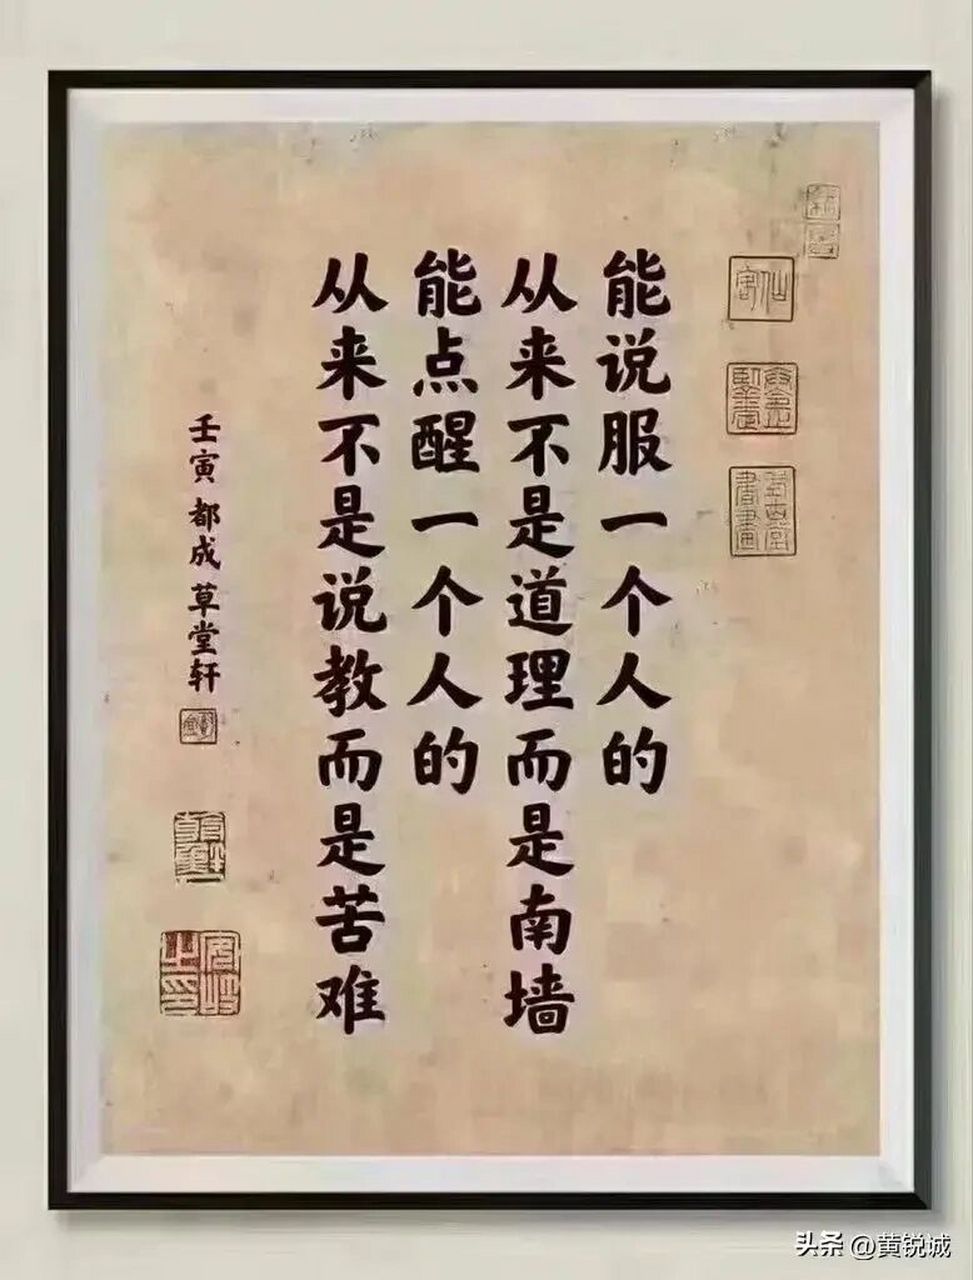 能说服一个人的
从来不是道理而是南墙
能点醒一个人的
从来不是说教而是苦难
壬寅都成草堂轩
仙客
头条 @黄锐诚